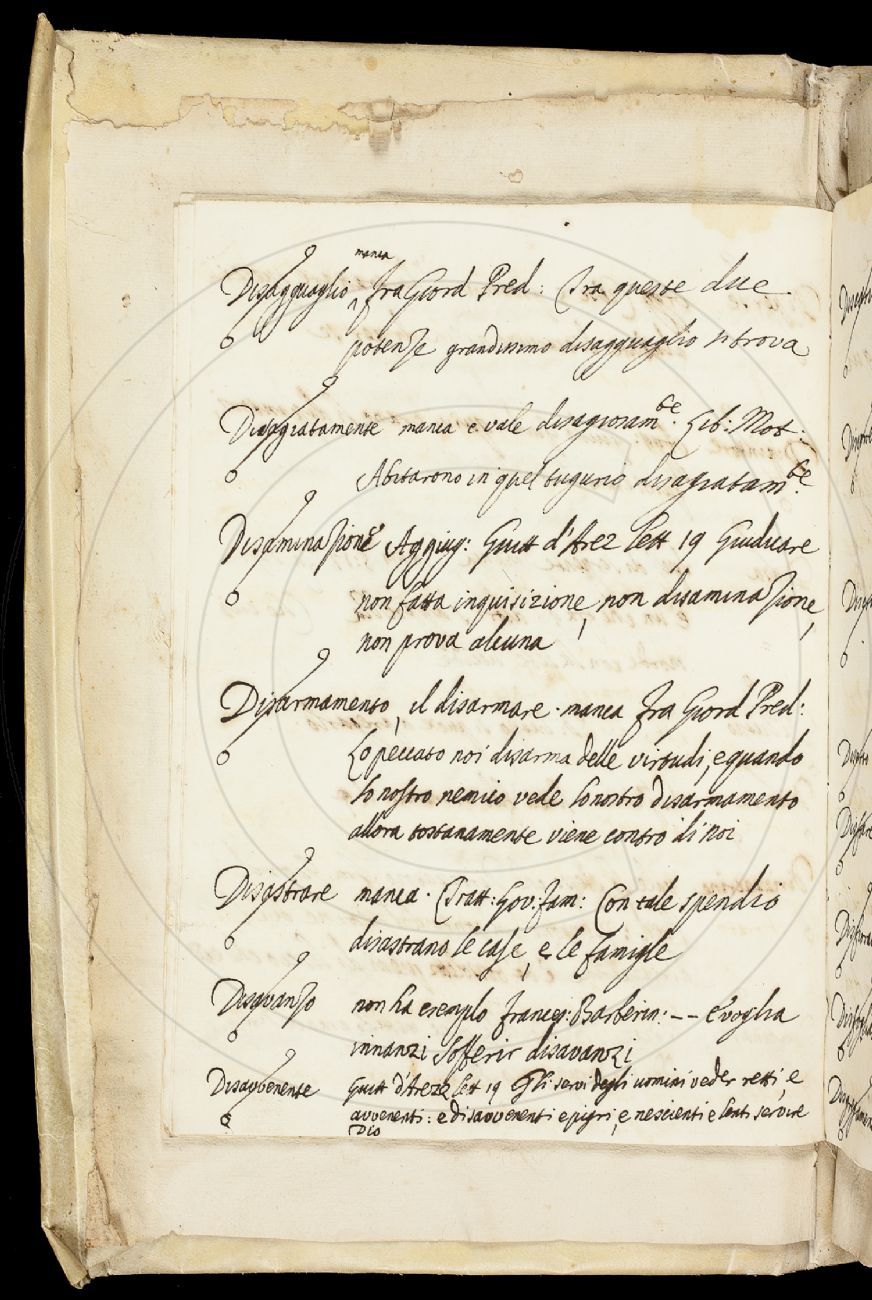 manca
Disagguaglio fra Giord Pred: Tra queste due
potenze grandissimo disagguaglio si trova
Disagiatamente manca e vale disagiosam.te Lib: Mot:
Abitarono in quel tugurio disagiatam.te
Disaminazione Aggiug: Guitt d'Arez lett 19 Giudicare
non fatta inquisizione, non disaminazione,
non prova alcuna
Disarmamento, il disarmare. manca fra Giord Pred:
Lo peccato noi disarma delle virtudi, e quando
lo nostro nemico vede lo nostro disarmamento
allora tostanamente viene contro di noi
Disastrare manca. Tratt: Gov: fam: Con tale spendio
disastrano le case, e le famigle
Disavanzo non ha esemplo frances: Barberin: -- E voglia
innanzi Sofferir disavanzi
Disavvenente Guitt d'Arezz lett 19 Gli servi degli uomini veder retti, e
avvenenti: e disavvenenti e pigri, e nescienti e lenti servire
Dio